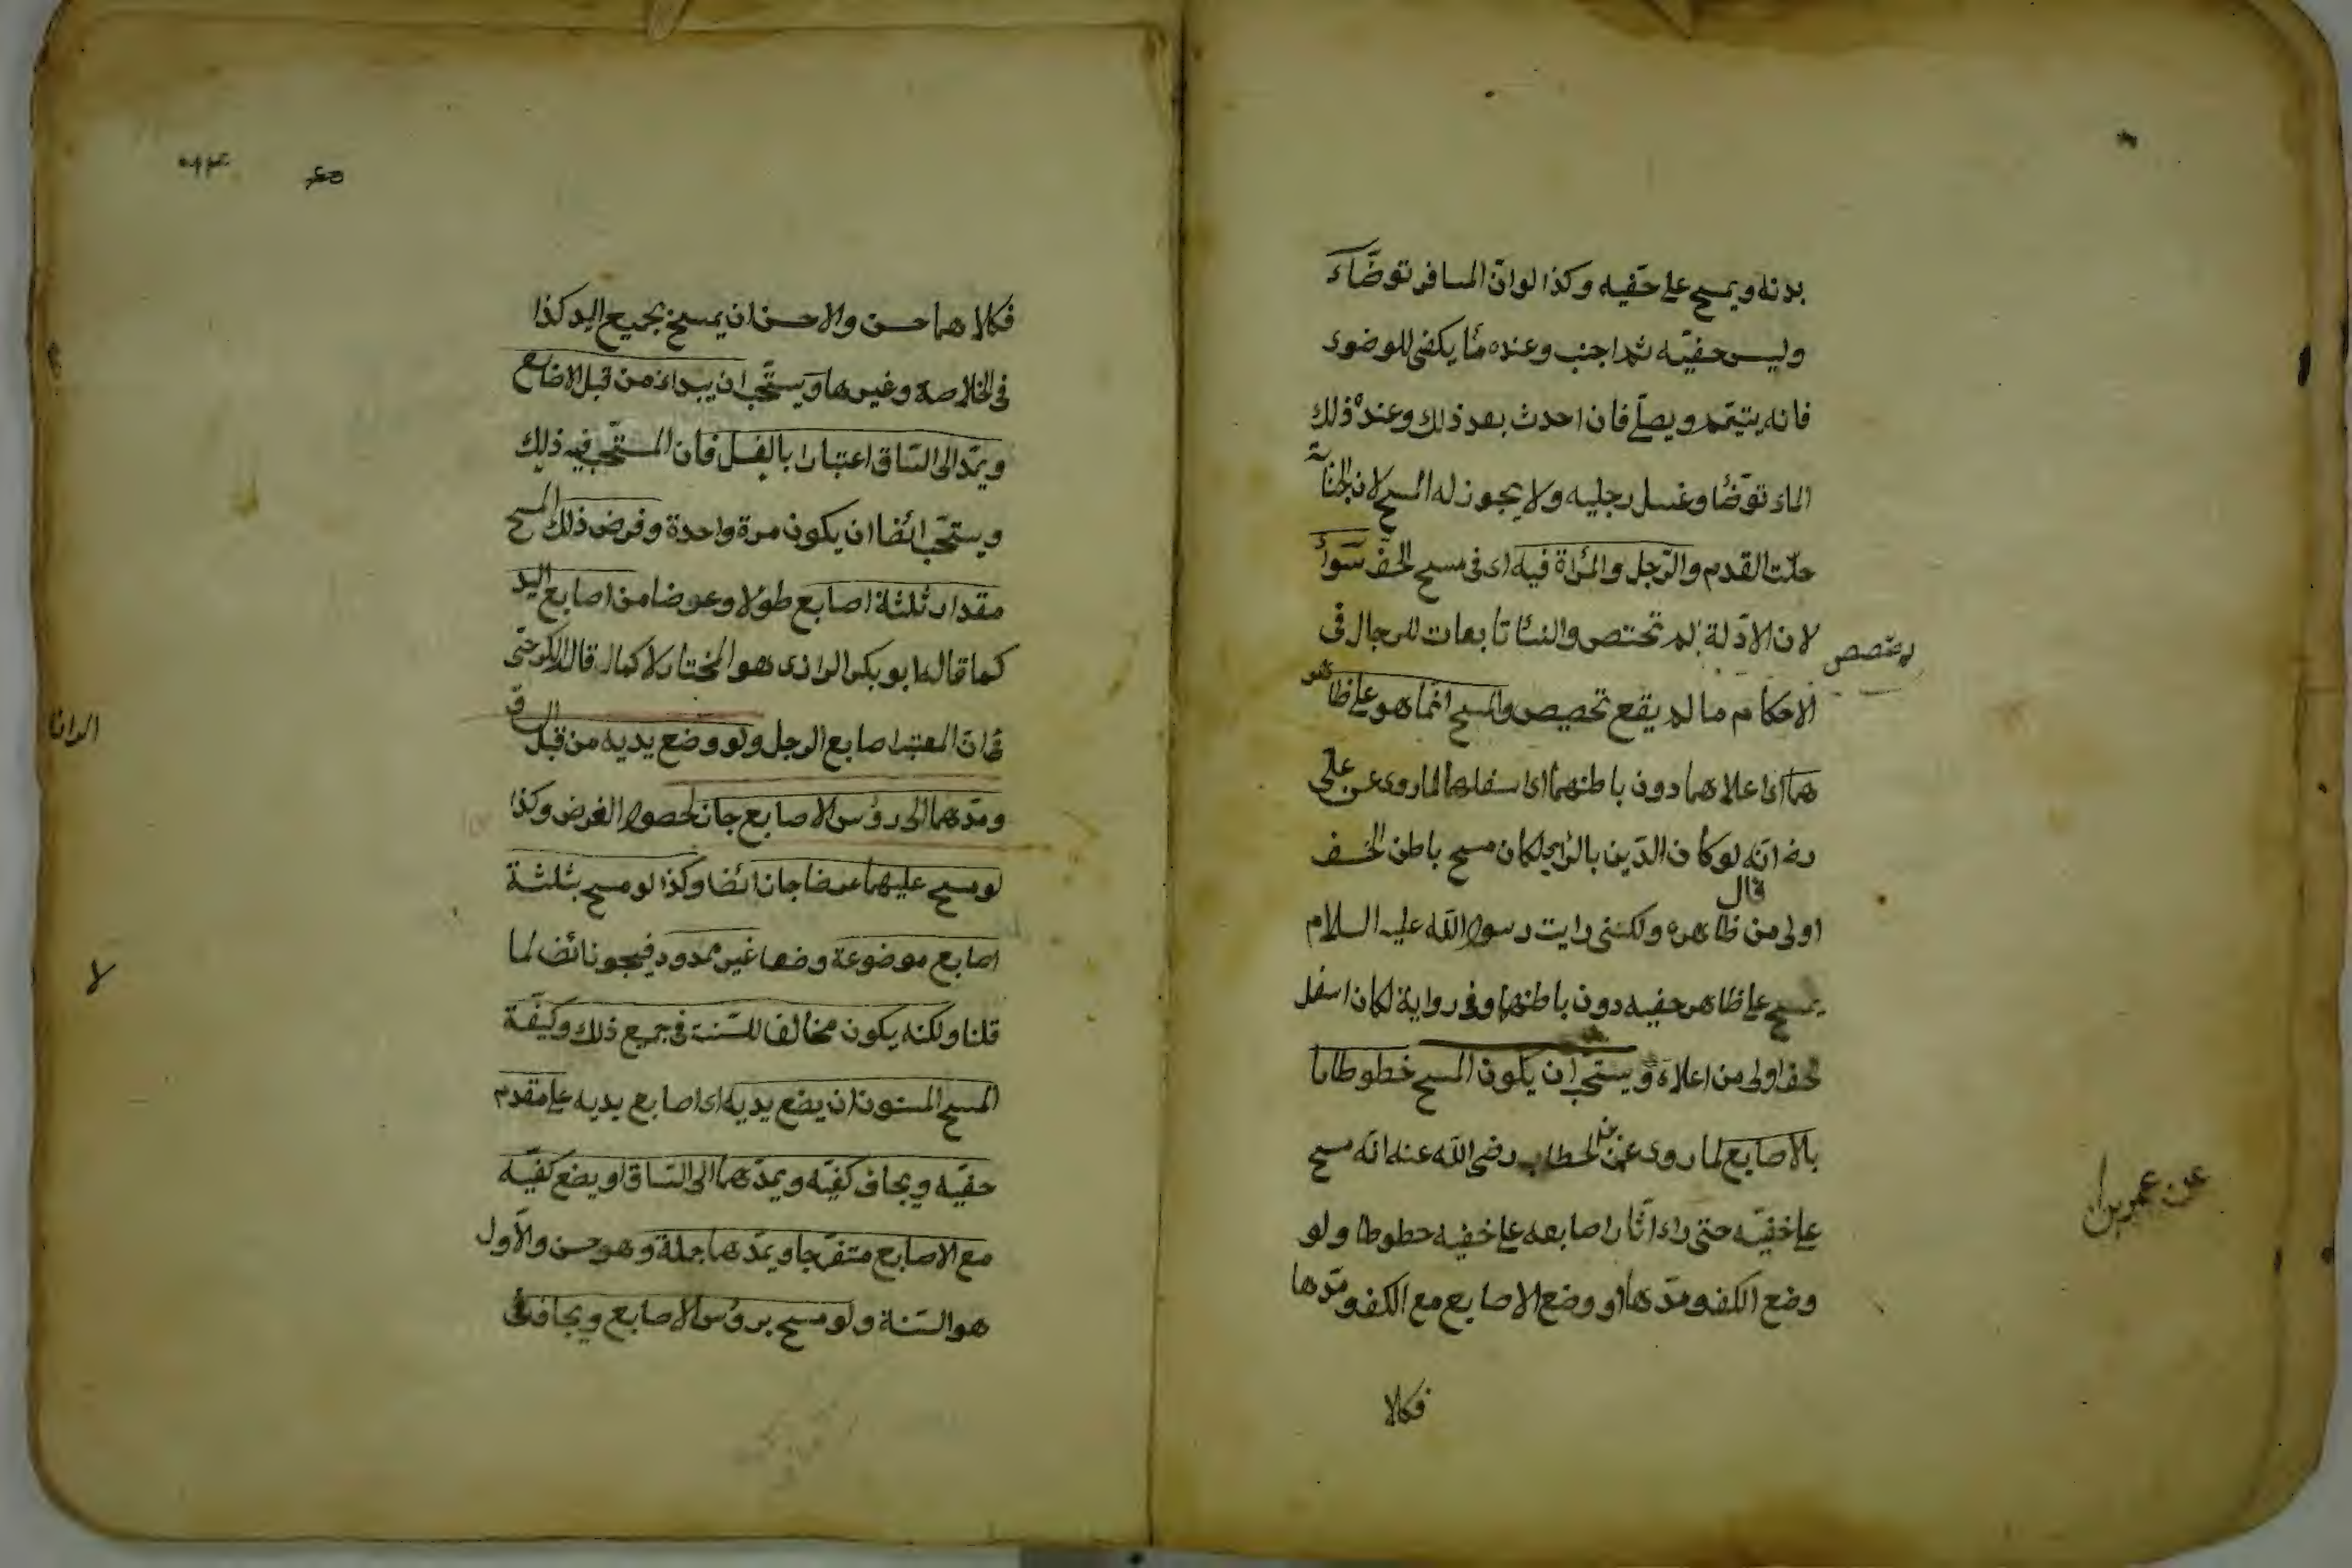 بدنه ويمسح على خفيه وكذا لو ان المسافر توضاء
وليس خفيه ثم اجنب وعنده ما يكفى للوضوء
فانه يتيمم ويصلى فان احدث بعد ذلك وعنده ذلك
الماء توضا وغسل رجليه ولا يجوز له المسح لان الجنابة
حلت القدم والرجل والمراة فيه اى فى مسح الخف سواء
لان الادلة لم تختص والنسا تابعات للرجال فى
الاحكام ما لم يقع تخصيص والمسح انما هو على ظاهر
هما اى اعلاهما دون باطنهما اى اسفلهما لما روى عن على
رضه انه لو كان الدين بالراى لكان مسح باطن الخف
قال
اولى من ظاهره ولكننى رايت رسول الله عليه السلام
يمسح على ظاهر خفيه دون باطنهما وفى رواية لكان اسفل
الخف اولى من اعلاه ويستحب ان يكون المسح خطوطا
بالاصابع لما روى عن الخطاب رضى الله عنه انه مسح
عن عمر بن
على خفيه حتى راء اثار اصابعه على خفيه خطوطا ولو
وضع الكف ومدها او وضع الاصابع مع الكف ومدها
فكلا
فكلا هما حسن والاحسن ان يمسح بجميع اليد كذا
فى الخلاصة وغيرها ويستحب ان يبداء من قبل الاصابع
ويمد الى الساق اعتبارا بالغسل فان المستحب فيه ذلك
ويستحب ايضا ان يكون مرة واحدة وفرض ذلك المسح
مقدار ثلثة اصابع طولا وعرضا من اصابع اليد
كما قاله ابو بكر الرازى هو المختار لا كما قال الكرخى
فان المعتبر اصابع الرجل ولو وضع يديه من قبل الساق
ومدهما الى رؤس الاصابع جاز لحصول الفرض وكذا
لو مسح عليهما عرضا جاز ايضا وكذا لو مسح بثلثة
اصابع موضوعة وضعا غير ممدود فيجوز ايضا لما
لا
قلنا ولكنه يكون مخالفا للسنة فى جميع ذلك وكيفية
المسح المسنون ان يضع يديه اى اصابع يديه على مقدم
خفيه ويجافى كفيه ويمدهما الى الساق او يضع كفيه
مع الاصابع متفرجا ويمدها جملة وهو حسن والاول
هو السنة ولو مسح برؤس الاصابع ويجافى